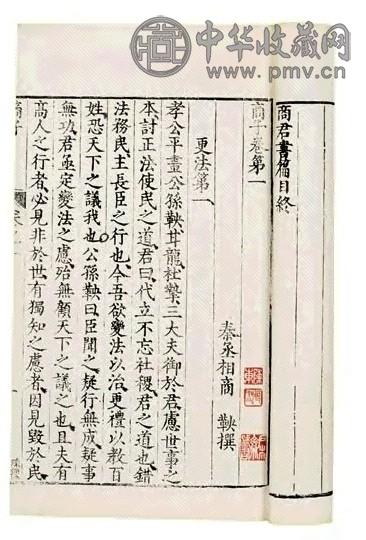 中华收藏网
www.pmv.cn
商君書篇目終
商子卷第一
秦丞相商 鞅撰
更法第一
孝公平畫公孫鞅甘龍杜摯三大夫御於君慮世事之
本討正法使民之道君曰代立不忘社稷君之道也錯
法務民主長臣之行也今吾欲變法以治更禮以教百
姓恐天下之議我也公孫鞅曰臣聞之疑行無成疑事
無功君亟定變法之慮殆無顧天下之議之也且夫有
高人之行者必見非於世有獨知之慮者因見毀於民
商子